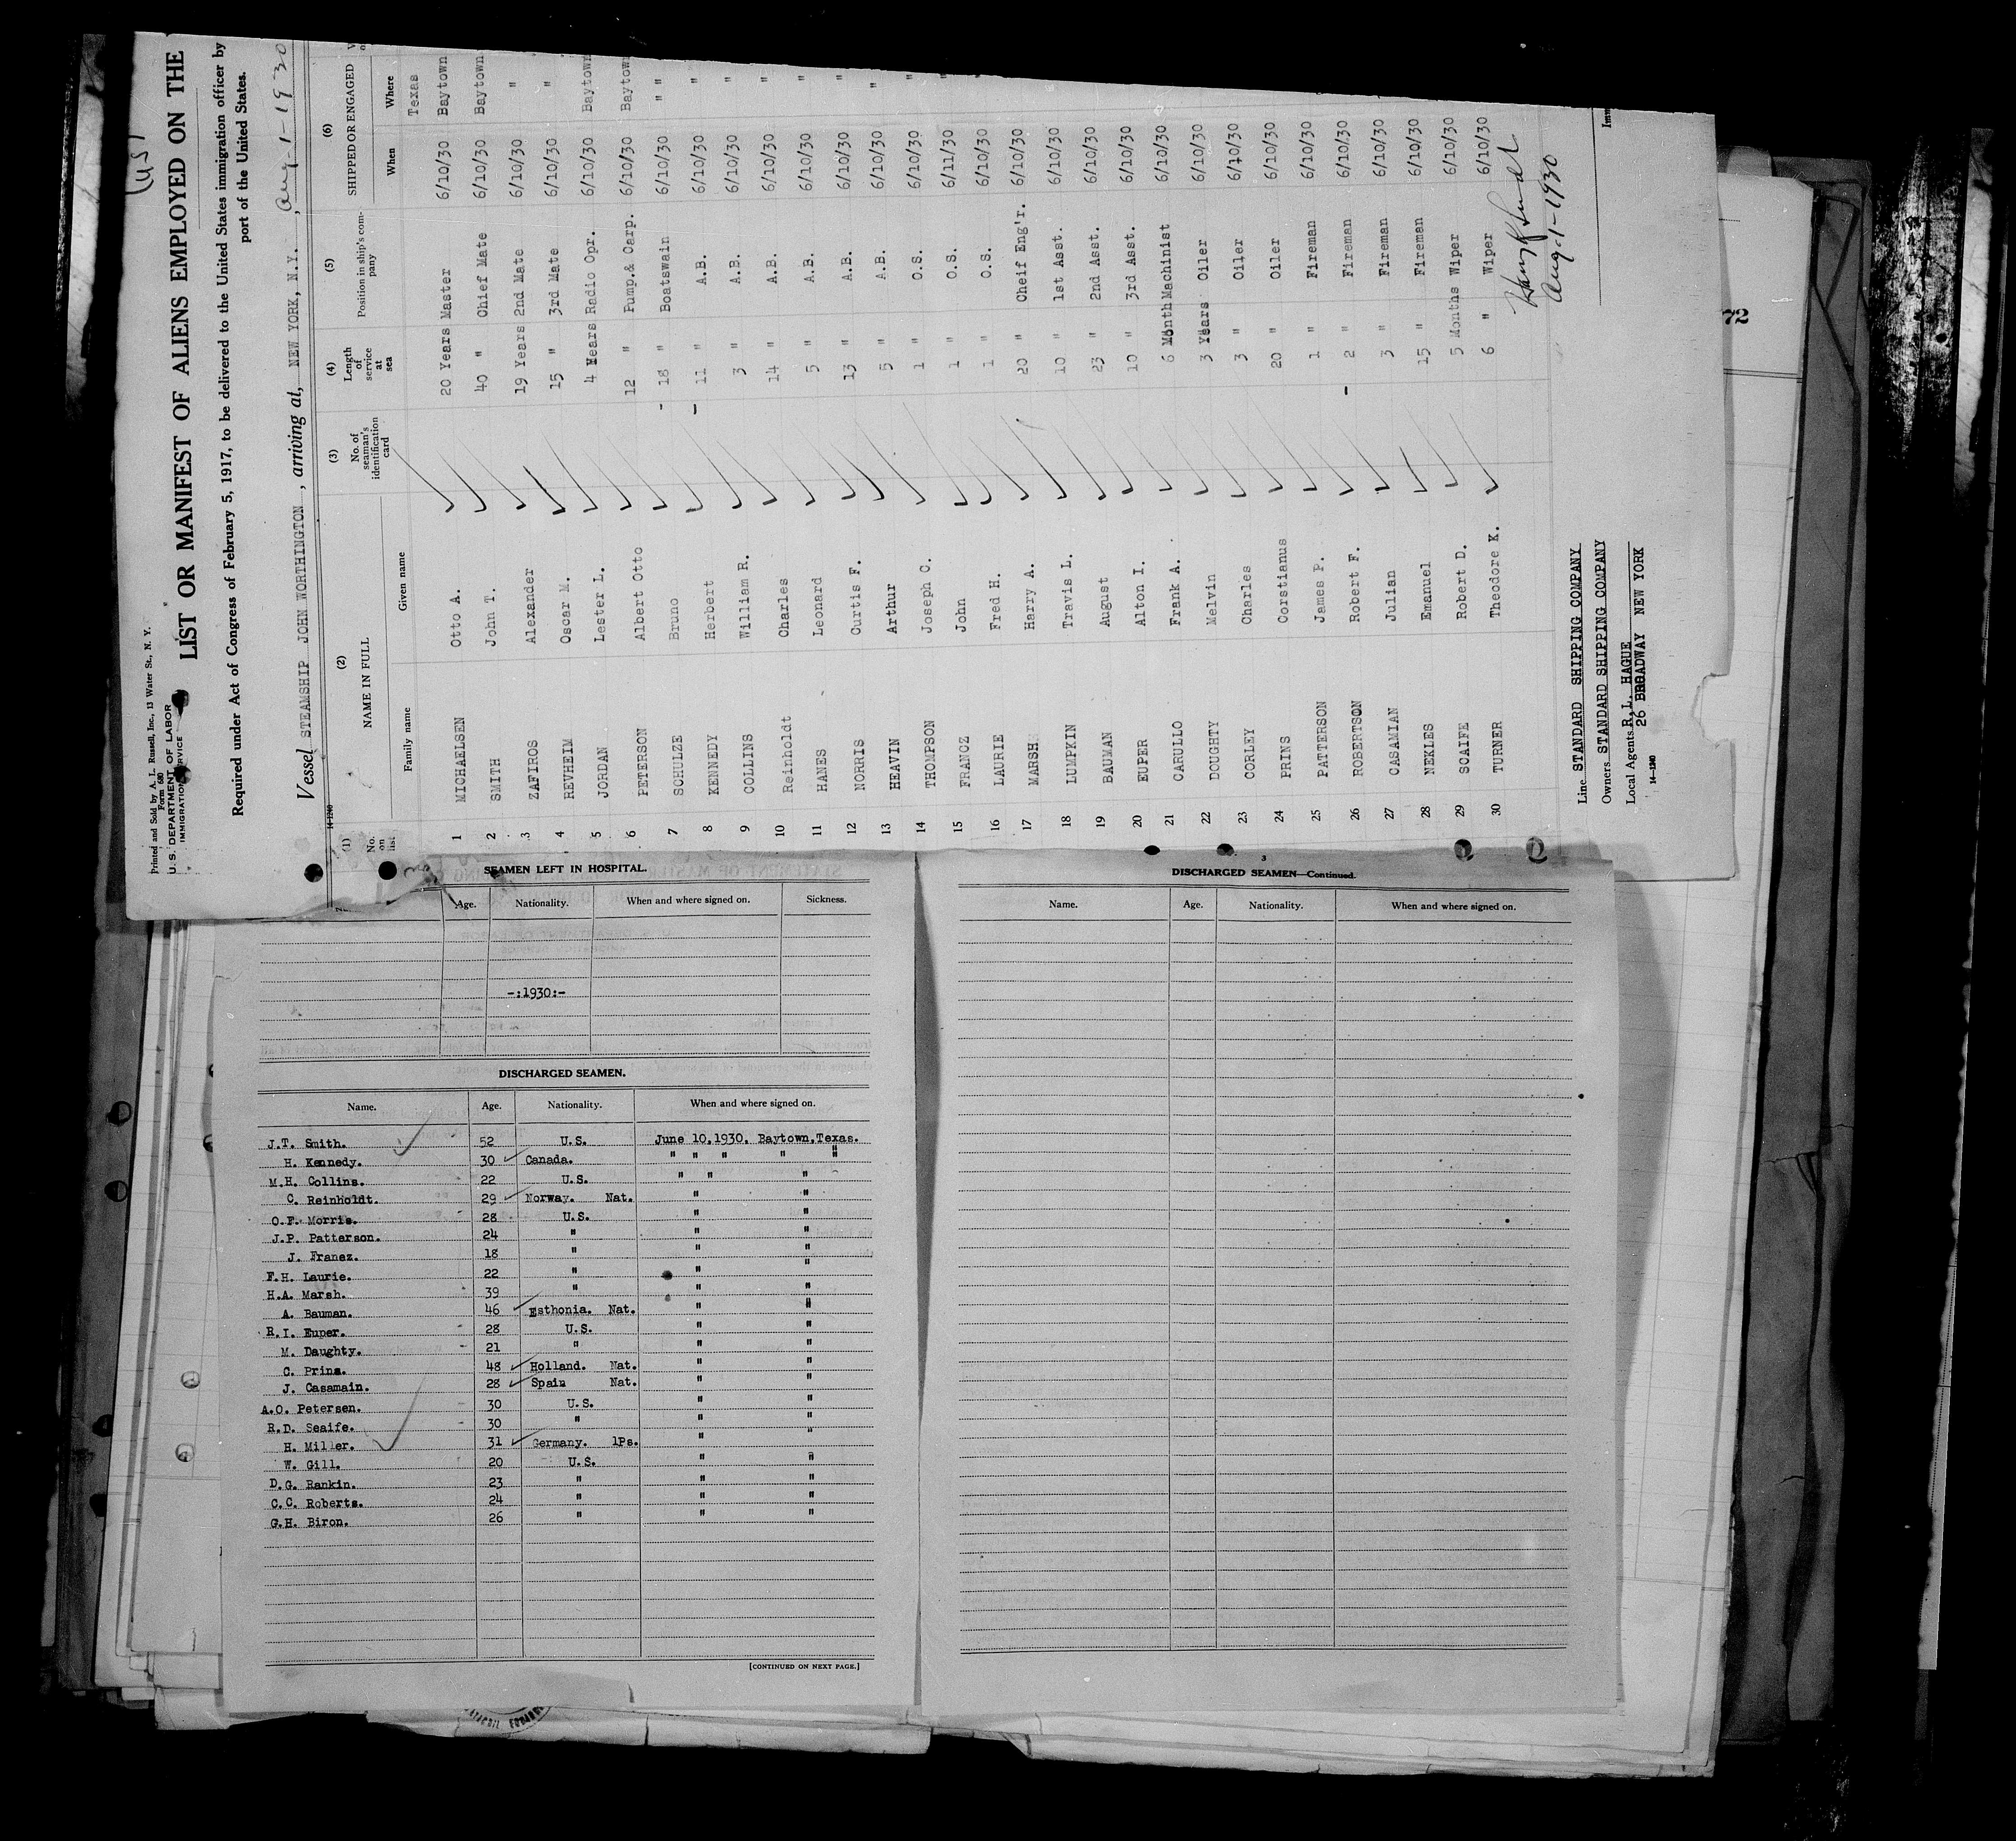 Printed and Sold by A. L. Russell, Inc., 13 Water St., N. Y.
Form 680
U.S. DEPARTMENT OF LABOR
IMMIGRATION SERVICE
LIST OR MANIFEST OF ALIENS EMPLOYED ON THE
Required under Act of Congress of February 5, 1917, to be delivered to the United States immigration officer by
port of the United States.
Vessel STEAMSHIP JOHN WORTHINGTON, arriving at, NEW YORK, N.Y., Aug-1-1930
14-1240
(1) (2) (3) (4) (5) (6)
No. on list NAME IN FULL No. of seaman's identification card Length of service at sea Position in ship's company SHIPPED OR ENGAGED
Family name Given name When Where
Texas
1 MICHAELSEN Otto A. 20 Years Master 6/10/30 Baytown
2 SMITH John T. 40 " Chief Mate 6/10/30 Baytown
3 ZAFIROS Alexander 19 Years 2nd Mate 6/10/30 "
4 REVHEIM Oscar M. 15 " 3rd Mate 6/10/30 "
5 JORDAN Lester L. 4 Years Radio Opr. 6/10/30 Baytown
6 PETERSON Albert Otto 12 " Pump.& Carp. 6/10/30 Baytown
7 SCHULZE Bruno 18 " Boatswain 6/10/30 " "
8 KENNEDY Herbert 11 " A.B. 6/10/30 "
9 COLLINS William R. 3 " A.B. 6/10/30 "
10 Reinholdt Charles 14 " A.B. 6/10/30 "
11 HANES Leonard 5 " A.B. 6/10/30 "
12 NORRIS Curtis F. 13 " A.B. 6/10/30 "
13 HEAVIN Arthur 5 " A.B. 6/10/30 "
14 THOMPSON Joseph C. 1 " O.S. 6/10/30 "
15 FRANCZ John 1 " O.S. 6/11/30 "
16 LAURIE Fred H. 1 " O.S. 6/10/30
17 MARSH Harry A. 20 " Cheif Eng'r. 6/10/30
18 LUMPKIN Travis L. 10 " 1st Asst. 6/10/30
19 BAUMAN August 23 " 2nd Asst. 6/10/30
20 EUPER Alton I. 10 " 3rd Asst. 6/10/30
21 CARULLO Frank A. 6 Month Machinist 6/10/30
22 DOUGHTY Melvin 3 Years Oiler 6/10/30
23 CORLEY Charles 3 " Oiler 6/10/30
24 PRINS Corstianus 20 " Oiler 6/10/30
25 PATTERSON James P. 1 " Fireman 6/10/30
26 ROBERTSON Robert F. 2 " Fireman 6/10/30
27 CASAMIAN Julian 3 " Fireman 6/10/30
28 NEKLES Emanuel 15 " Fireman 6/10/30
29 SCAIFE Robert D. 5 Months Wiper 6/10/30
30 TURNER Theodore K. 6 " Wiper 6/10/30
Aug-1-1930
Line STANDARD SHIPPING COMPANY
Owners STANDARD SHIPPING COMPANY
Local Agents R.L. HAGUE
26 BROADWAY NEW YORK
14-1240
72
SEAMEN LEFT IN HOSPITAL.
Age. Nationality. When and where signed on. Sickness.
-:1930:-
DISCHARGED SEAMEN.
Name. Age. Nationality. When and where signed on.
J.T. Smith. 52 U.S. June 10,1930. Baytown,Texas.
H. Kennedy. 30 Canada. " " " " "
M.H. Collins. 22 U.S. " " "
C. Reinholdt. 29 Norway. Nat. " "
O.F. Morris. 28 U.S. " "
J.P. Patterson. 24 " " "
J. Franez. 18 " " "
F.H. Laurie. 22 " " "
H.A. Marsh. 39 " " "
A. Bauman. 46 Esthonia. Nat. " "
R.I. Euper. 28 U.S. " "
M. Daughty. 21 " " "
C. Prins. 48 Holland. Nat. " "
J. Casamain. 28 Spain Nat. " "
A.O. Petersen. 30 U.S. " "
R.D. Seaife. 30 " " "
H. Miller. 31 Germany. 1Ps. " "
W. Gill. 20 U.S. " "
D.G. Rankin. 23 " " "
C.C. Roberts. 24 " " "
G.H. Biron. 26 " " "
[CONTINUED ON NEXT PAGE.]
3
DISCHARGED SEAMEN—Continued.
Name. Age. Nationality. When and where signed on.